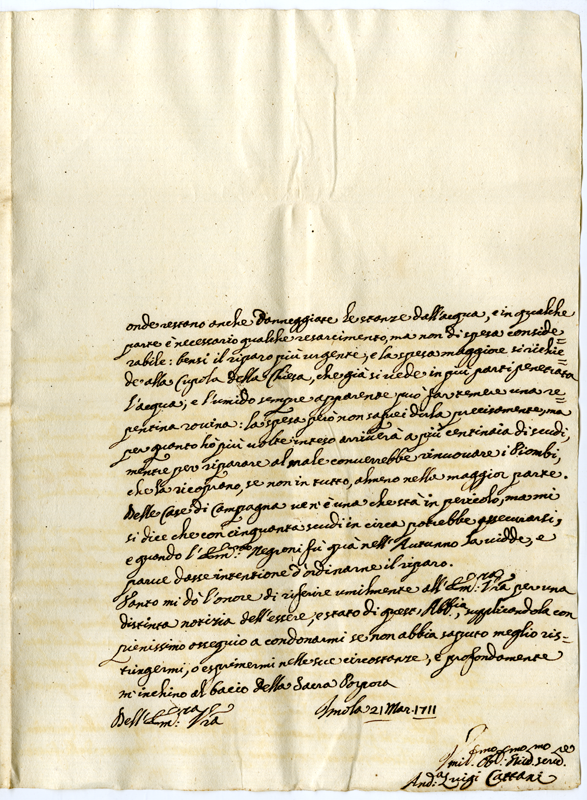 onde restano anche danneggiate le stanze dall'acqua, e in qualche
parte è necessario qualche resarcimento, ma non di spesa conside=
rabile: bensì il riparo più urgente, e la spesa maggiore si richie=
de alla Cupola della Chiesa, che già si vede in più parti penetrata
l'acqua, e l'umido sempre apparente può far temere una re=
pentina rovina: la spesa però non saprei dirla precisamente, ma
per quanto hò più volte inteso arriverà a più centinaia di scudi,
mentre per riparare al male converrebbe rinuovare i Piombi,
che la ricoprano, se non in tutto, almeno nella maggior parte.
Delle Case di Campagna ve n'è una che stà in pericolo, ma mi
si dice che con cinquanta scudi in circa potrebbe assecurarsi,
e quando l'Em.mo Negroni fù quà nell'Autunno la vidde, e
parve dasse intentione d'ordinarne il riparo.
Tanto mi dò l'onore di riferire umilmente all'Em.za V.ra per una
distinta notizia dell'essere, e stato di quest'Abb.ia, supplicandola con
pienissimo ossequio a condonarmi se non abbia saputo meglio ris=
tringermi, o esprimermi nelle sue circostanze, e profondamente
m'inchino al bacio della Sacra Porpora
Dell'Em.za V.ra Imola 21 Mar. 1711
Umil.mo Obl.mo Serv.re
And.a Luigi Cattani